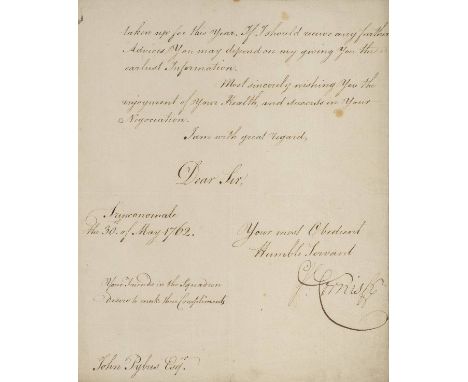 taken up for this Year. If I should receive any farther
Advices, You may depend on my giving You the
earliest Information.
Most sincerely wishing You the
enjoyment of Your Health, and success in Your
Negociation.
I am with great regard,
Dear Sir,
Trinconomale
the 30. of May 1762.
Your most Obedient
Humble Servant
S. Cornish
Your Friends in the Squadron
desire to make their Compliments
John Pybus Esqr.